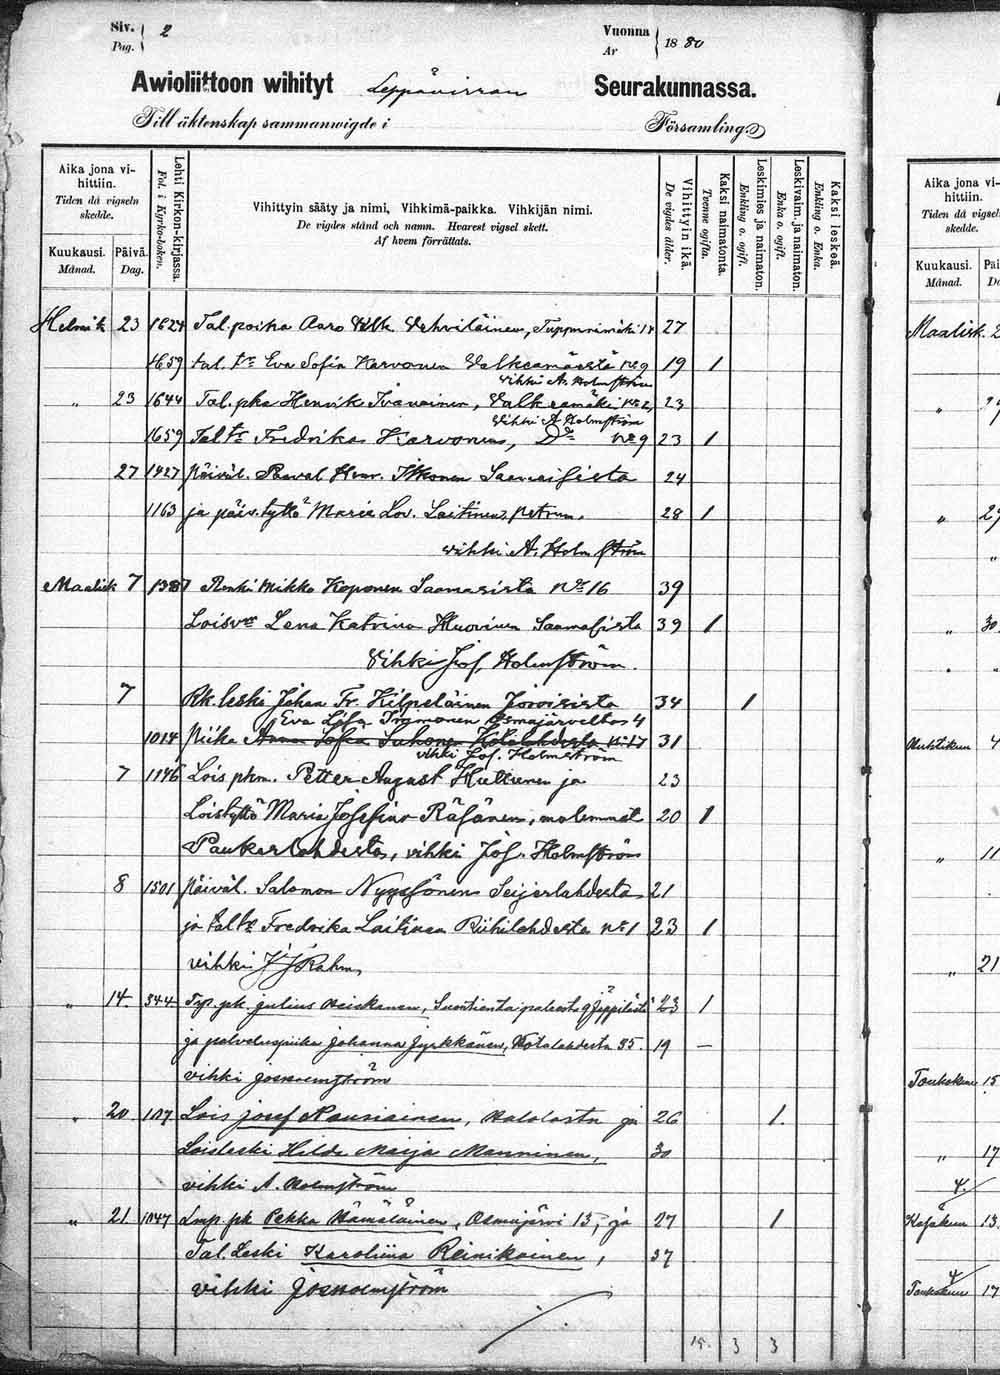 Siv. 2 Vuonna
Pag. Ar 1880
Awioliittoon wihityt Leppävirran Seurakunnassa.
Till äktenskap sammanwigde i Församling.
Aika jona vi-
hittiin.
Tiden då vigseln
skedde.
Kuukausi.
Månad.
Päivä.
Dag.
Lehti Kirkon-kirjassa.
Fol. i Kyrko-boken.
Vihittyin sääty ja nimi, Vihkimä-paikka. Vihkijän nimi.
De vigdes stånd och namn. Hvarest vigsel skett.
Af hvem förrättats.
Vihittyin ikä.
De vigdes ålder.
Kaksi naimatonta.
Tvenne ogifta.
Leskimies ja naimaton.
Enkling o. ogift.
Leskivaim. ja naimaton.
Enka o. ogift.
Kaksi leskeä.
Enkling o. Enka.
Helmik 23 1624 Tal. poika Aaro Vilh. Vehviläinen, 27
1659 tal. tr Eva Sofia Karvonen Valkeamäestä No 9 19 1
vihki A. Holmström
„ 23 1644 Tal. pka Henrik Ivanainen, Valkeamäki No 2, 23
Vihki A Holmström
1659 Tal tr Fredrika Karvonen, Do No 9 23 1
27 1427 päiväl. Paavel Henr. Itkonen Saamaisista 24
1163 ja päiv. tyttö Maria Lov. Laitinen, 28 1
vihki A. Holmström
Maalisk 7 1387 Renki Mikko Koponen Saamaisista No 16 39
Loisvr Lena Katrina Huovinen Saamaisista 39 1
Vihki Jos. Holmström.
7 Rk. leski Johan Fr. Kilpeläinen Joroisista 34 1
Eva Lisa Osmajärveltä 4
1014 Piika Anna Sofia Suhonen Kotalahdesta No 17 31
vihki Jos. Holmström
7 1146 Lois pkn. Petter August Huttunen ja 23
Loistyttö Maria Josefina Räsänen, molemmat 20 1
Paukarlahdesta, vihki Jos. Holmström
8 1501 Päiväl. Salomon Nyyssönen Seijerlahdesta 21
ja tal tr Fredrika Laitinen Riihilahdesta No 1 23 1
vihki J J Rahm,
„ 14. 344 Typ. pk. Julius Heiskanen, 23 1
ja palveluspiika Johanna Jyrkkänen, Kotalahdesta 35. 19 –
vihki Jos Holmström
„ 20 107 Lois Josef Nousiainen, ja 26 1.
Loisleski Hilda Maija Manninen, 30
vihki A. Holmström
„ 21. 1047 Lmp. pk Pekka Hämäläinen, Osmajärvi 13, ja 27 1
Tal. Leski Karoliina Reinikainen, 37
vihki Jos Holmström
15. 3 3
Aika jona vi-
hittiin.
Tiden då vigseln
skedde.
Kuukausi.
Månad.
Maalisk. 2
„
„ 29
„
„ 30
Huhtikuu 4
„ 11
„ 21
Toukokuu 15
„ 17
4.
Kesäkuu 13.
4
Toukokuu 17